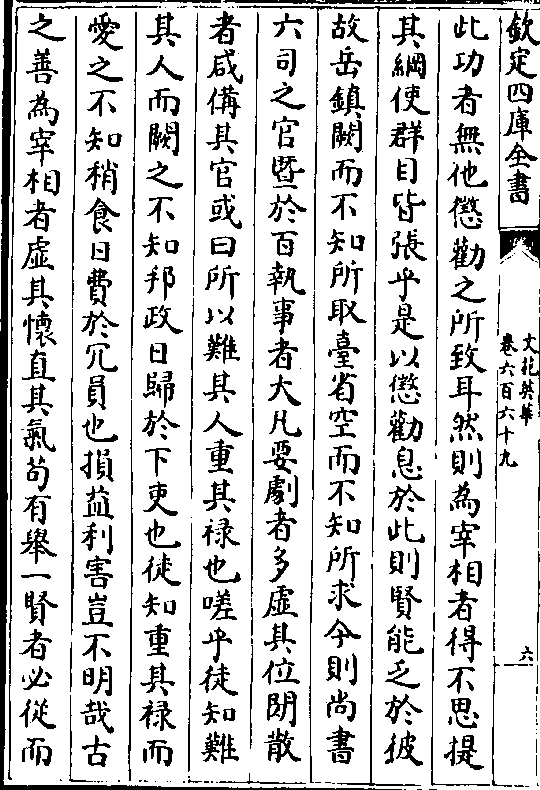 欽定四庫全書
文苑英華
卷六百六十九
六
此功者無他懲勸之所致耳然則為宰相者得不思提
其綱使群目皆張乎是以懲勸息於此則賢能乏於彼
故岳鎮闕而不知所取臺省空而不知所求今則尚書
六司之官曁於百執事者大凡要劇者多虛其位閑散
者咸備其官或曰所以難其人重其禄也嗟乎徒知難
其人而闕之不知邦政日歸於下吏也徒知重其禄而
愛之不知稍食日費於冗員也損益利害豈不明哉古
之善為宰相者虛其懷直其氣苟有舉一賢者必從而